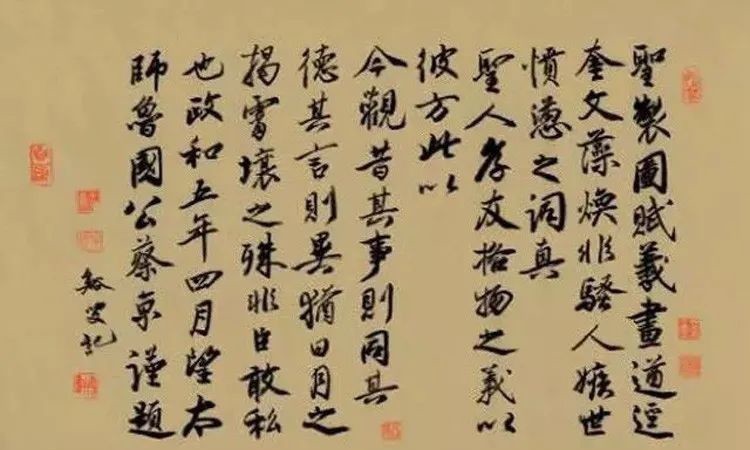 聖製圖賦義畫道逕
奎文藻煥非騷人嫉世
憤懣之詞真
聖人孝友格物之義以
彼方此以
今觀昔其事則同其
德其言則異猶日月之
揭霄壤之殊非臣敢私
也政和五年四月望太
師魯國公蔡京謹題
谿叟記